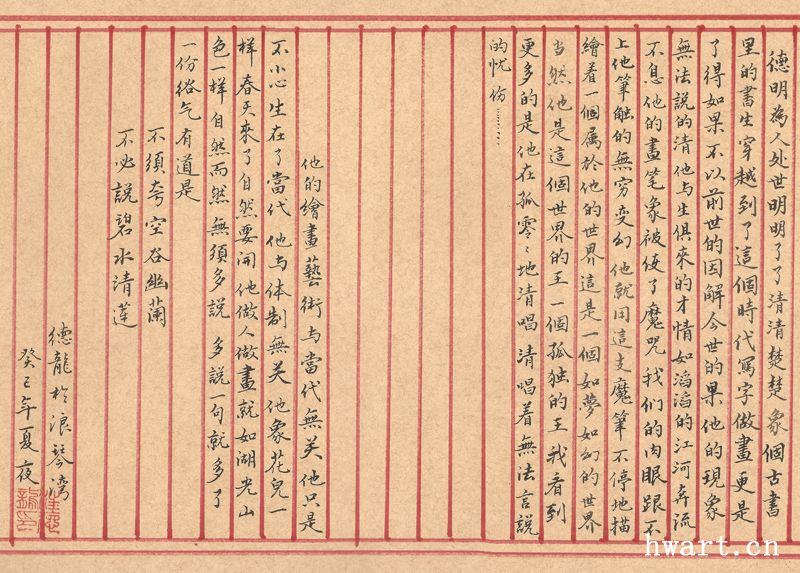 德明為人处世明明了了清清楚楚象個古書
里的書生穿越到了這個時代寫字做畫更是
了得如果不以前世的因解今世的果他的現象
無法説的清他与生俱來的才情如滔滔的江河奔流
不息他的畫笔象被使了魔咒我们的肉眼跟不
上他筆触的無穷变幻他就用這支魔筆不停地描
繪着一個属於他的世界這是一個如夢如幻的世界
当然他是這個世界的王一個孤独的王我看到
更多的是他在孤零々地清唱清唱着無法言説
的忧伤……
他的繪畫藝術与當代無关他只是
不小心生在了當代他与体制無关他象花兒一
样春天來了自然要开他做人做畫就如湖光山
色一样自然而然無須多説多説一句就多了
一份俗气有道是
不須夸空谷幽蘭
不必説碧水清莲
德龍於浪琴湾
癸巳年夏夜
hwart.cn